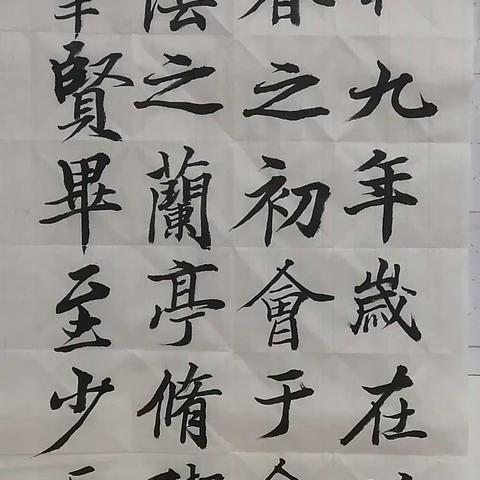 九年歲在
春之初會于
之蘭亭脩
賢畢至少